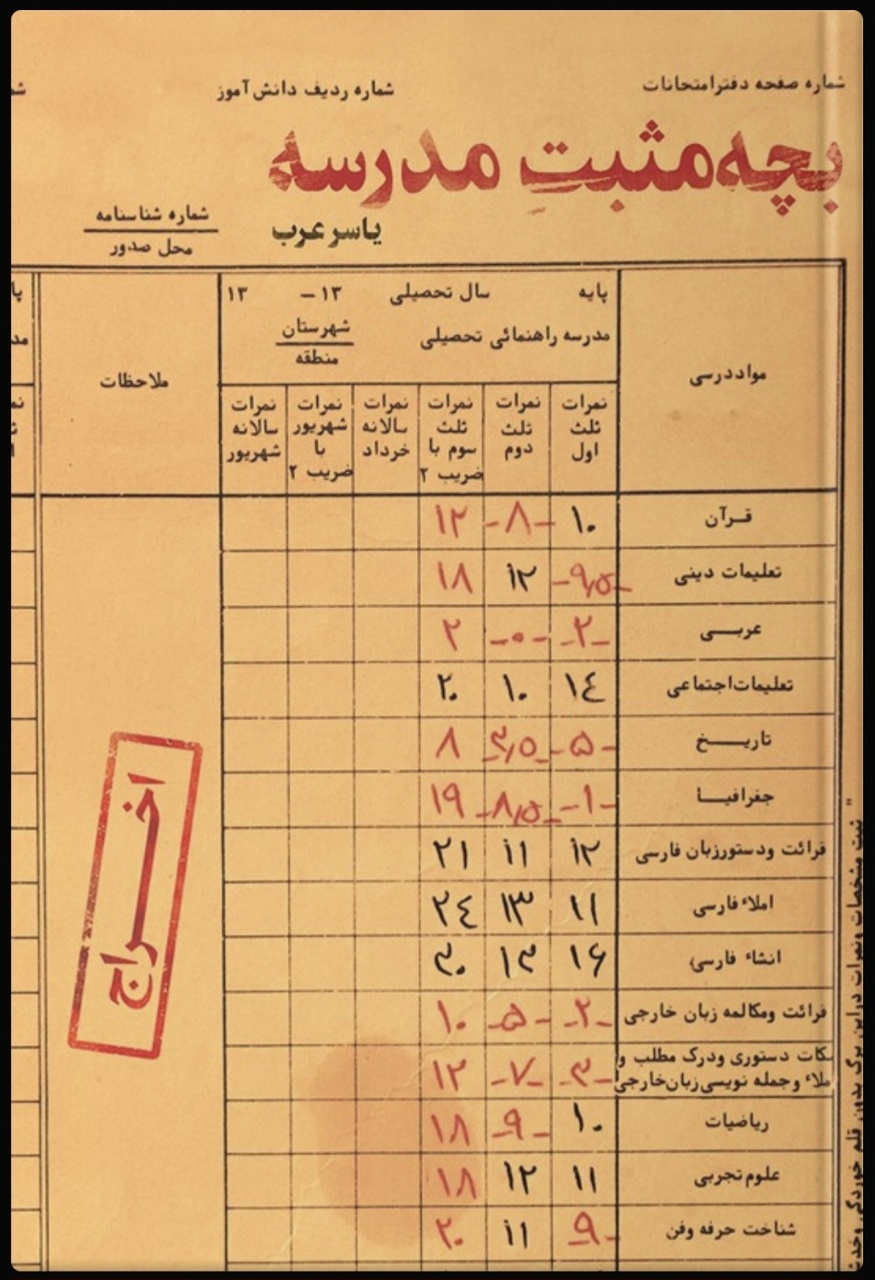 شماره صفحه دفتر امتحانات
شماره ردیف دانش آموز
بچه مثبتِ مدرسه
یاسر عرب
شماره شناسنامه
محل صدور
مواد درسی
پایه سال تحصیلی ۱۳ – ۱۳
مدرسه راهنمائی تحصیلی شهرستان
منطقه
ملاحظات
نمرات ثلث اول
نمرات ثلث دوم
نمرات ثلث سوم با ضریب ۲
نمرات سالانه خرداد
نمرات شهریور با ضریب ۲
نمرات سالانه شهریور
قـرآن ۱۰ -۸- ۱۲
تعلیمات دینی -۹٫۵- ۱۲ ۱۸
عربــی -۲- -۰- ۲
تعلیمات اجتماعی ۱٤ ۱۰ ۲۰
تاریـــخ -۵- -۳٫۵- ۸
جغرافیــا -۱- -۸٫۵- ۱۹
قرائت ودستورزبان فارسی ۱۲ ۱۱ ۲۱
املاء فارسی ۱۱ ۱۳ ۲٤
انشاء فارسی ۱۶ ۱۳ ۳۰
قرائت ومکالمه زبان خارجی -۲- -۵- ۱۰
نکات دستوری ودرک مطلب و
املاء وجمله نویسی زبان خارجی -۳- -۷- ۱۲
ریاضیات ۱۰ -۹- ۱۸
علوم تجربی ۱۱ ۱۲ ۱۸
شناخت حرفه وفن -۹- ۱۱ ۲۰
اخـــراج
" ثبت مشخصات ونمرات دراین برگ بدون قلم خوردگی وخدشه